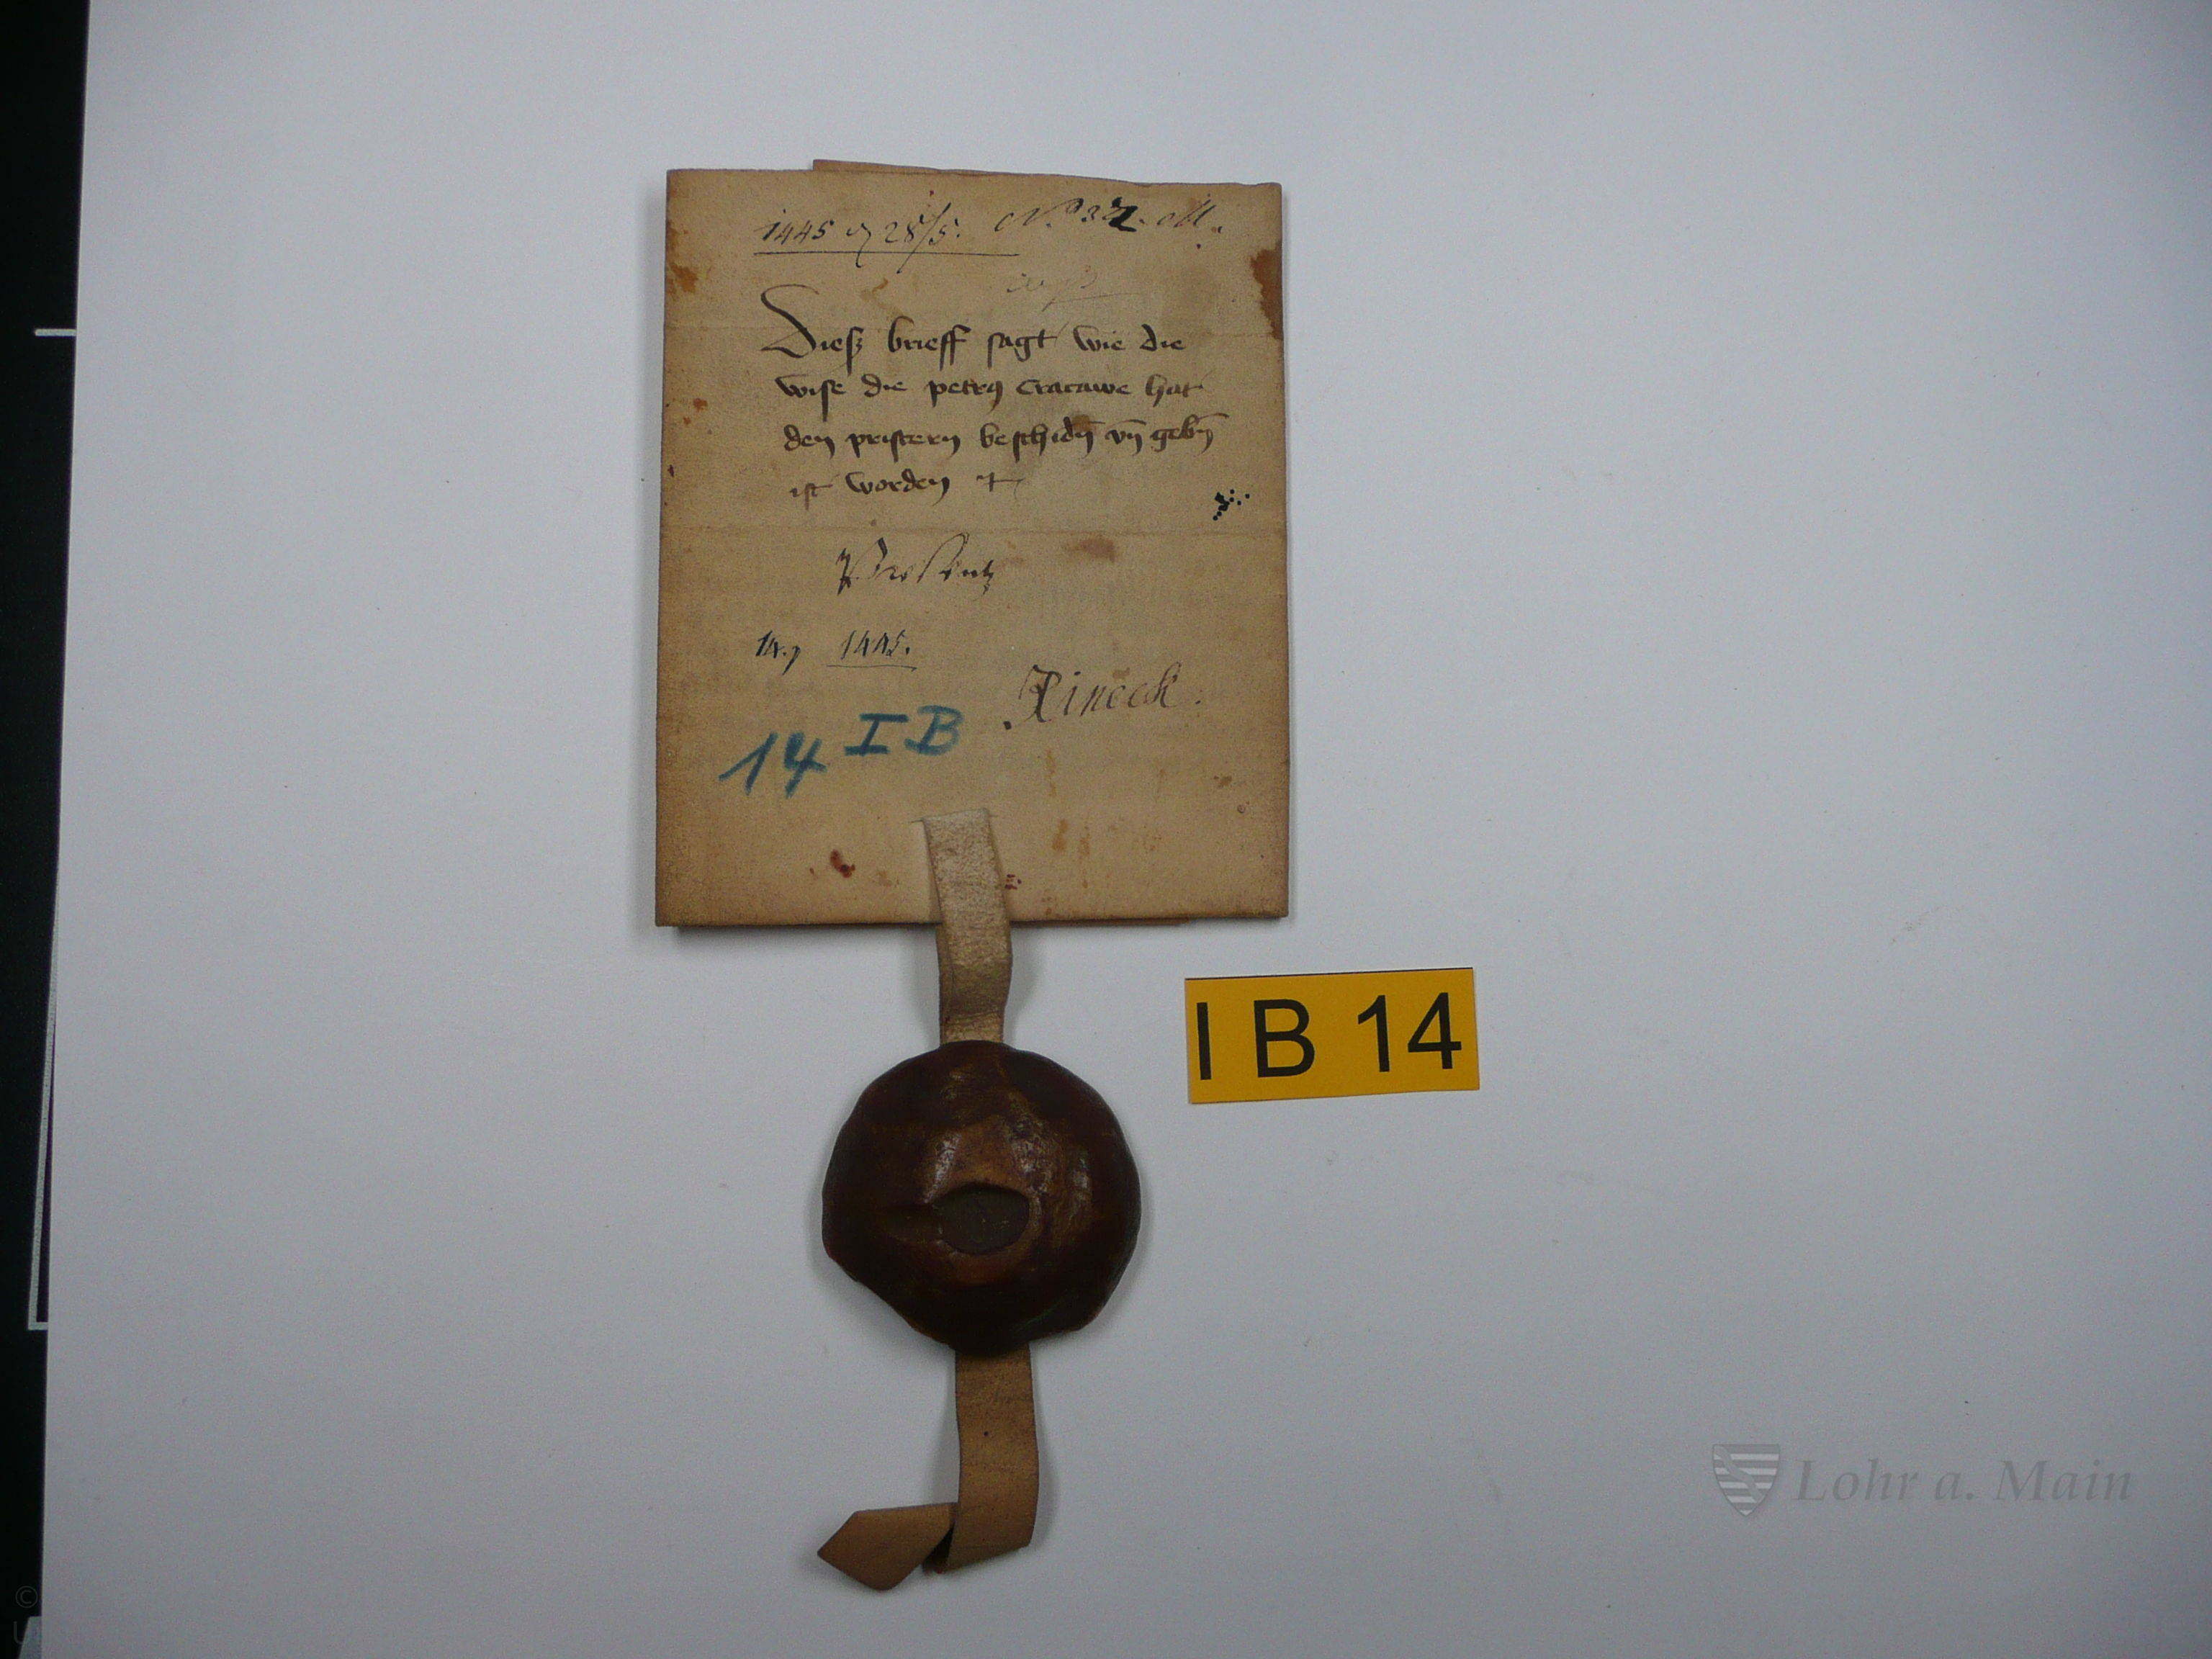 1445 28/5. No 32. M.
Dieß brieff sagt wie die
wise die petrꝯ Cracawe hat
den pristern beschidn̄ vn̄ gebn̄
ist worden
Presentz
14. 1445.
Rineck.
14 I B
I B 14
Lohr a. Main